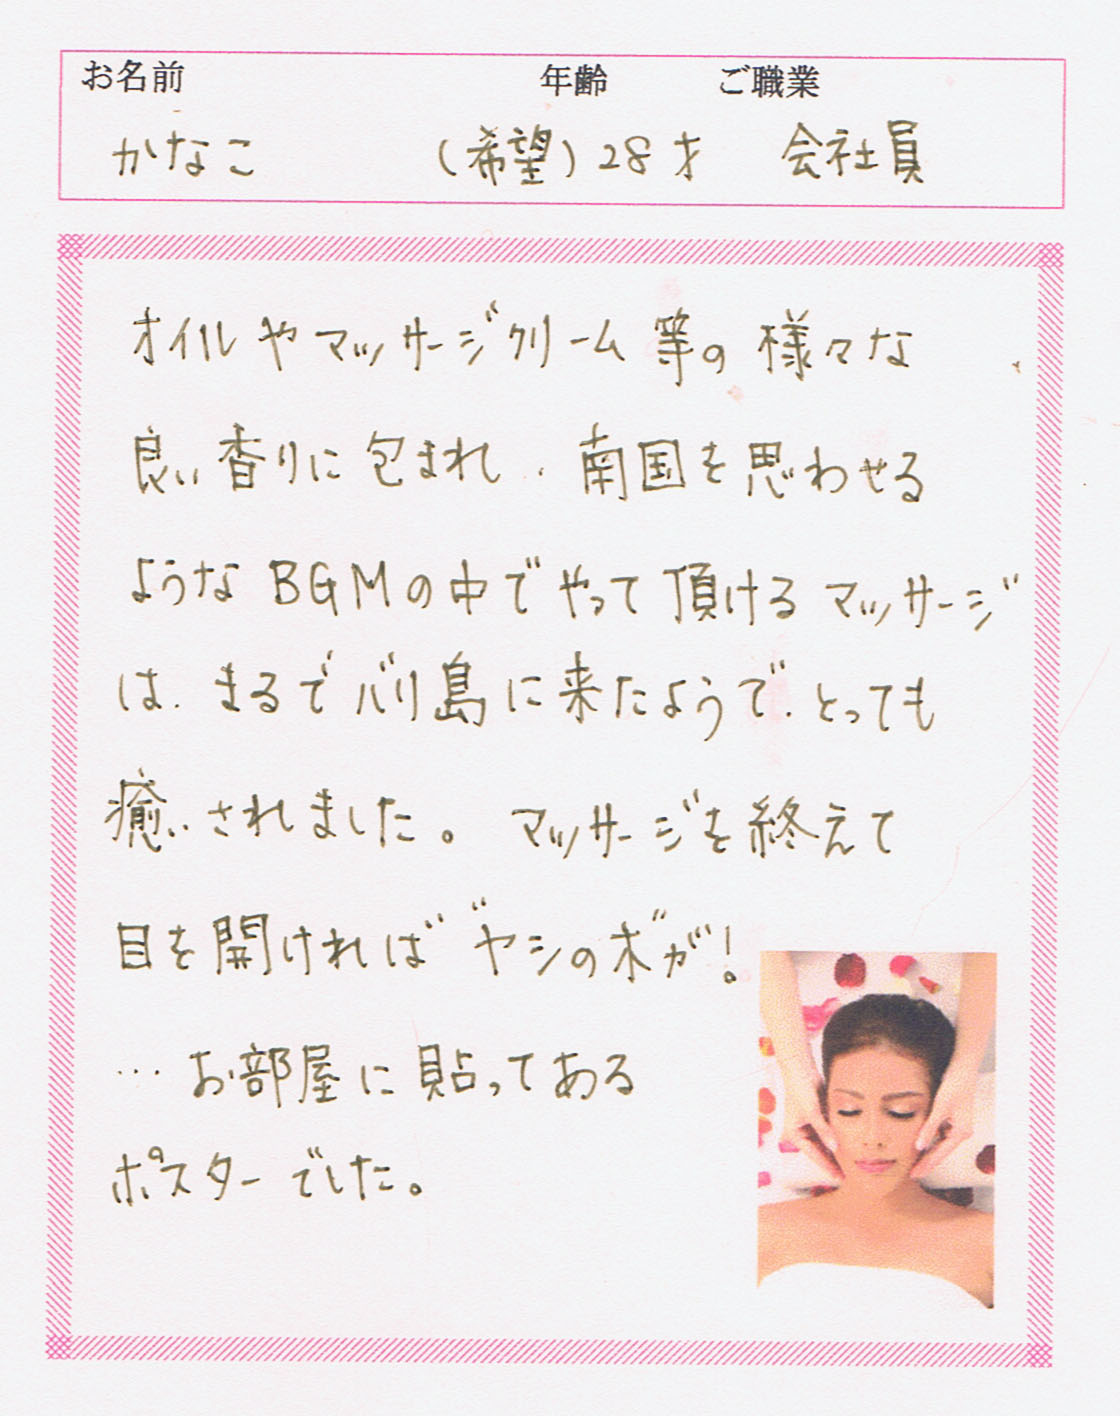 お名前 年齢 ご職業
かなこ (希望)28才 会社員
オイルやマッサージクリーム等の様々な
良い香りに包まれ、南国を思わせる
ようなBGMの中でやって頂けるマッサージ
は、まるでバリ島に来たようで、とっても
癒いされました。マッサージを終えて
目を開ければ゛ヤシの木゛が!
…お部屋に貼ってある
ポスターでした。